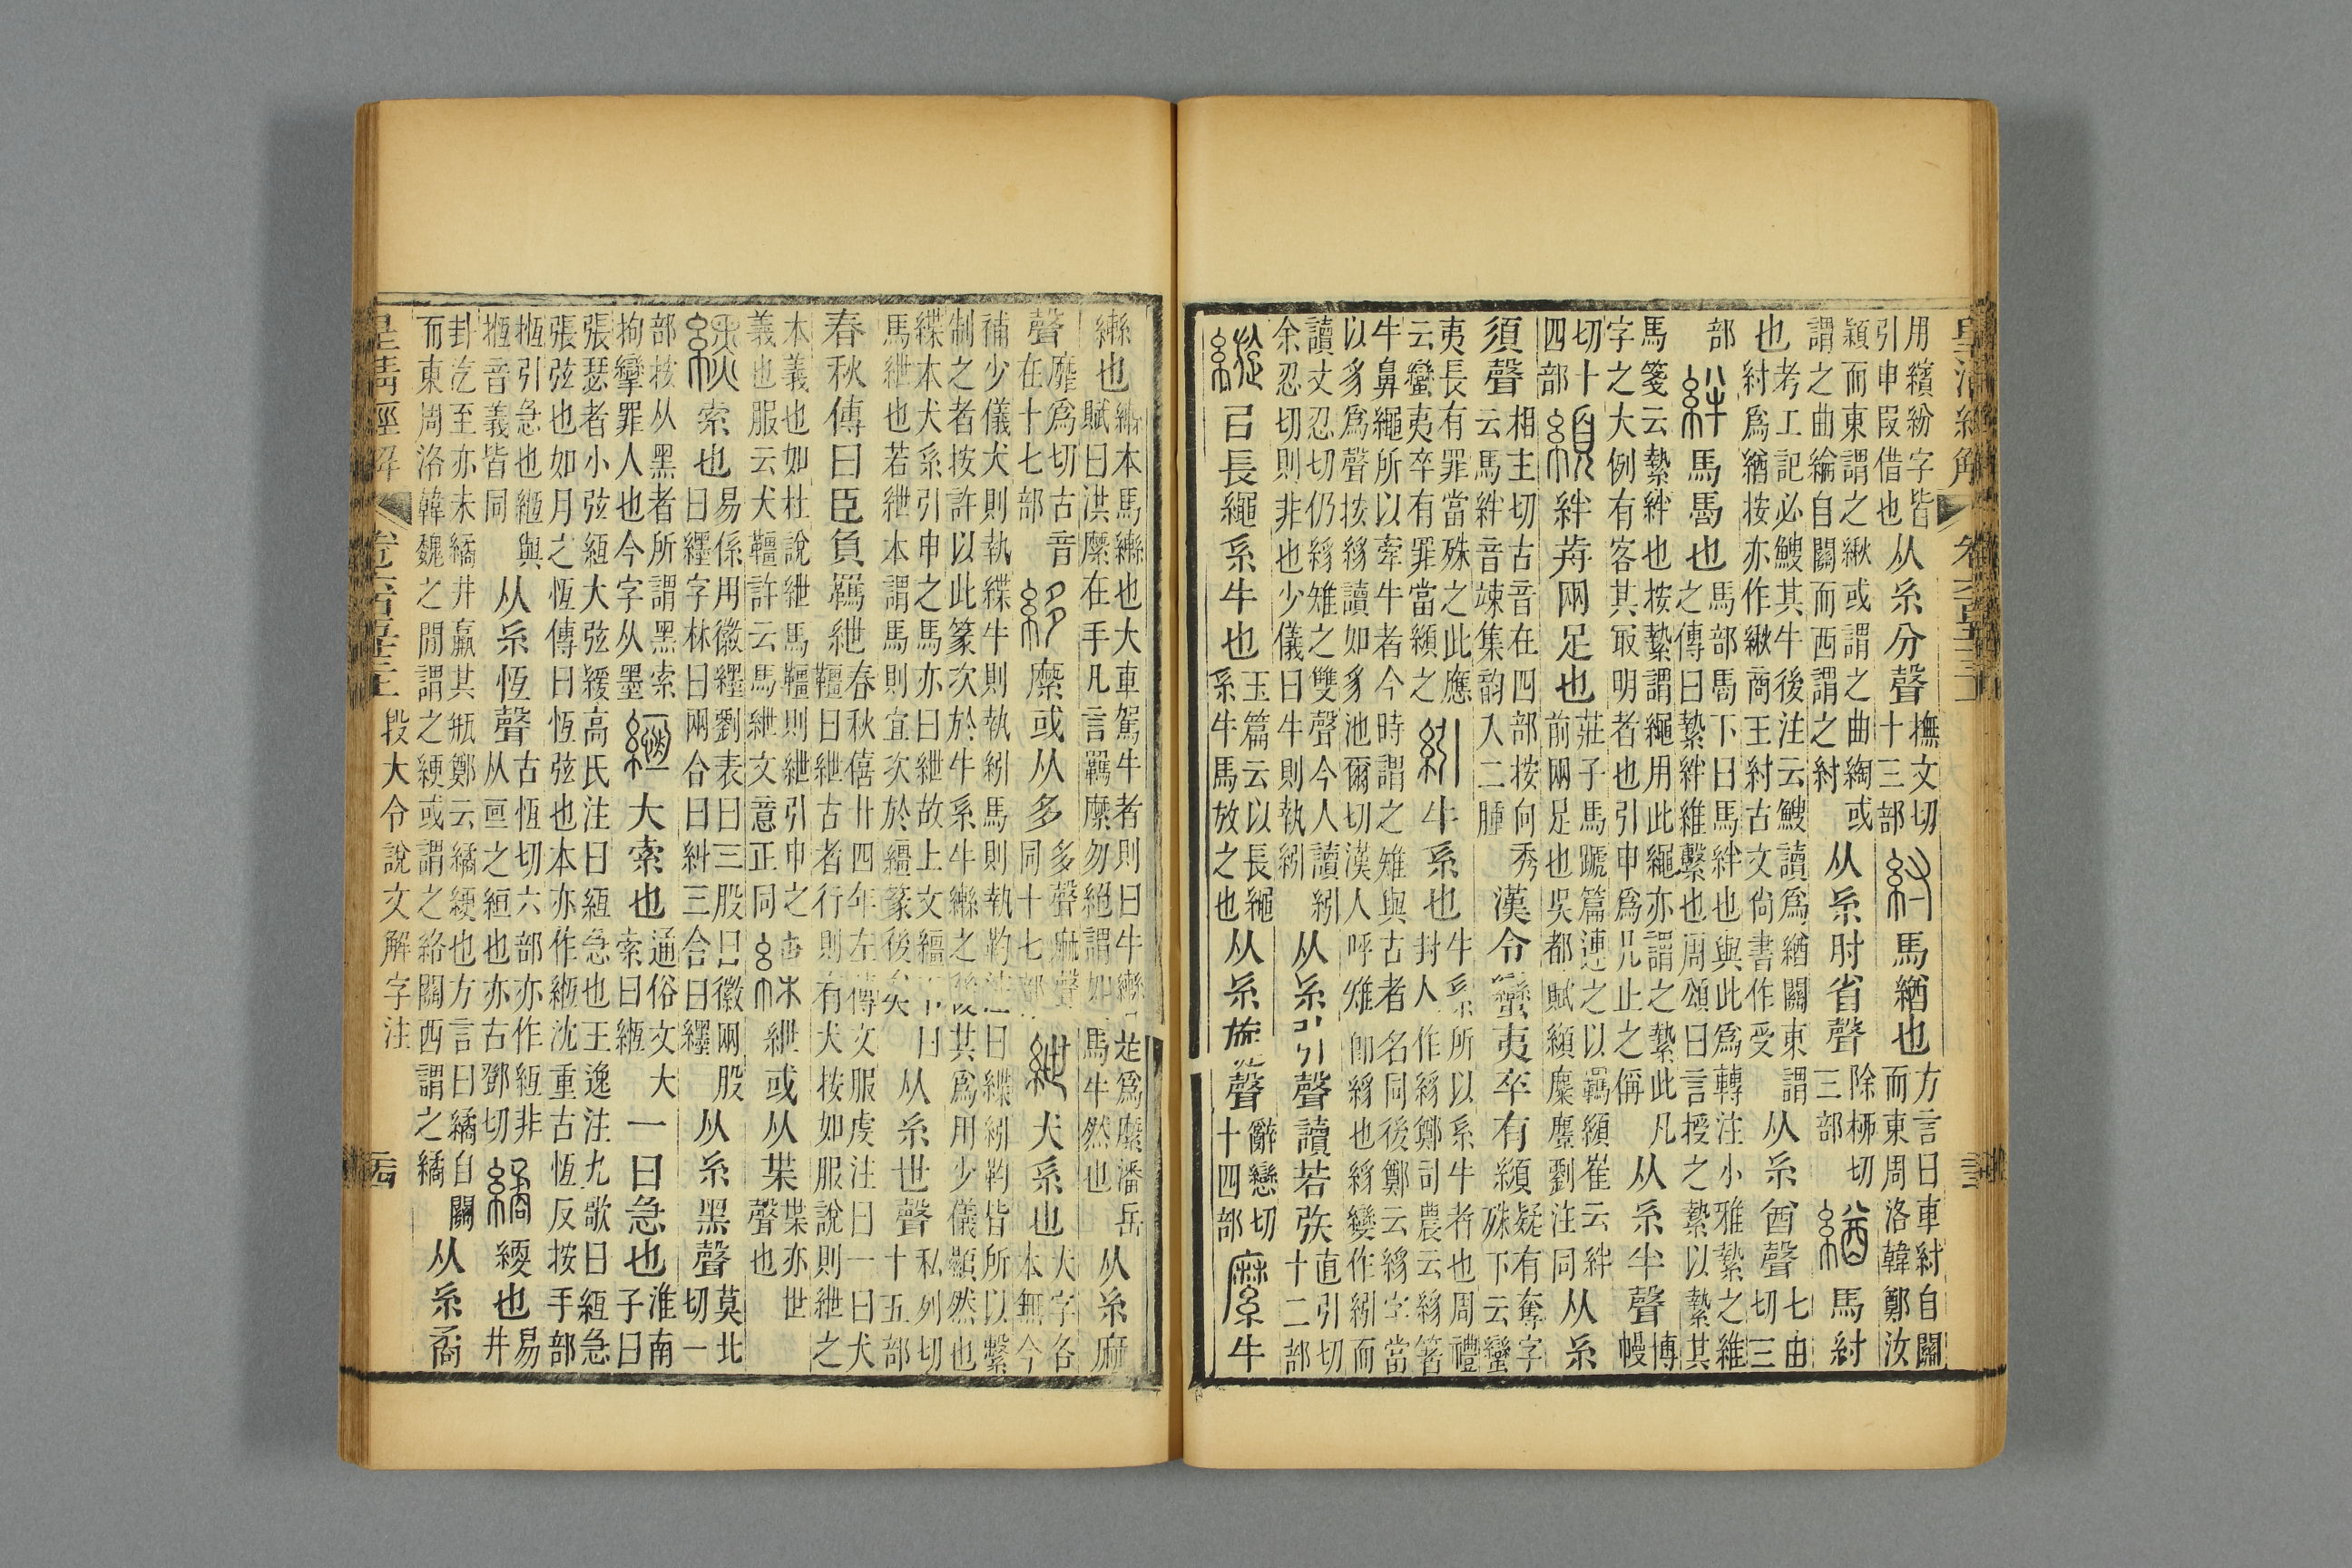 皇清經解 卷六百五十三
用繽紛字皆引申叚借也从糸分聲撫文切十三部紂馬緧也方言曰車紂自關而東周洛韓鄭汝
潁而東謂之䋺或謂之曲綯或謂之曲綸自關而西謂之紂从糸肘省聲除柳切三部緧馬紂
也考工記必䲡其牛後注云䲡讀爲緧關東謂紂爲緧按亦作䋺商王紂古文尚書作受从糸酋聲七由切三
部絆馬馽也馬部馽下曰馬絆也與此爲轉注小雅縶之維之傳曰縶絆維繫也周頌曰言授之縶以縶其
馬箋云縶絆也按縶謂繩用此繩亦謂之縶此凡字之大例有客其冣明者也引申爲凡止之偁从糸半聲博幔
切十四部絆歬兩足也莊子馬蹏篇連之以羈崔云絆前兩足也吳都賦麋麖劉注同从糸
須聲相主切古音在四部按向秀云馬絆音竦集韵入二腫漢令蠻夷卒有疑有奪字殊下云蠻
夷長有罪當殊之此應云蠻夷卒有罪當之紖牛系也牛系所以系牛者也周禮封人作絼鄭司農云絼箸
牛鼻繩所以牽牛者今時謂之雉與古者名同後鄭云絼字當以豸爲聲按絼讀如豸池爾切漢人呼雉卽絼也絼變作紖而
讀丈忍切仍絼雉之雙聲今人讀紖余忍切則非也少儀曰牛則執紖从糸引聲讀若矤直引切十二部
縼㠯長繩系牛也玉篇云以長繩系牛馬放之也从糸旋聲辭戀切十四部縻牛
轡也轡本馬轡也大車駕牛者則曰牛轡是爲縻潘岳賦曰洪縻在手凡言羈縻勿絕謂如馬牛然也从糸麻
聲靡爲切古音在十七部縻或从多多聲麻聲同十七部紲犬系也犬字各本無今
補少儀犬則執緤牛則執紖馬則執靮注曰緤紖靮皆所以繫制之者按許以此篆次於牛系牛轡之後其爲用少儀顯然也
緤本犬系引申之馬亦曰紲故上文繮下曰馬紲也若紲本謂馬則宜次於繮篆後矣从糸世聲私列切十五部
春秋傳曰臣負羈紲春秋僖廿四年左傳文服虔注曰一曰犬韁曰紲古者行則有犬按如服說則紲之
本義也如杜說紲馬韁則紲引申之義也服云犬韁許云馬紲文意正同緤紲或从枼枼亦世聲也
纆索也易係用徽纆劉表曰三股曰徽兩股曰纆字林曰兩合曰糾三合曰纆从糸黑聲莫北切一
部按从黑者所謂黑索拘攣罪人也今字从墨緪大索也通俗文大索曰緪一曰急也淮南子曰
張瑟者小弦絙大弦緩高氏注曰絙急也王逸注九歌曰絙急張弦也如月之恆傳曰恆弦也本亦作緪沈重古恆反按手部
搄引急也緪與搄音義皆同从糸恆聲古恆切六部亦作絙非从亘之絙也亦古鄧切繘綆也易井
卦汔至亦未繘井羸其瓶鄭云繘綆也方言曰繘自關而東周洛韓魏之閒謂之綆或謂之絡關西謂之繘从糸矞
皇清經解 卷六百五十三 段大令說文解字注